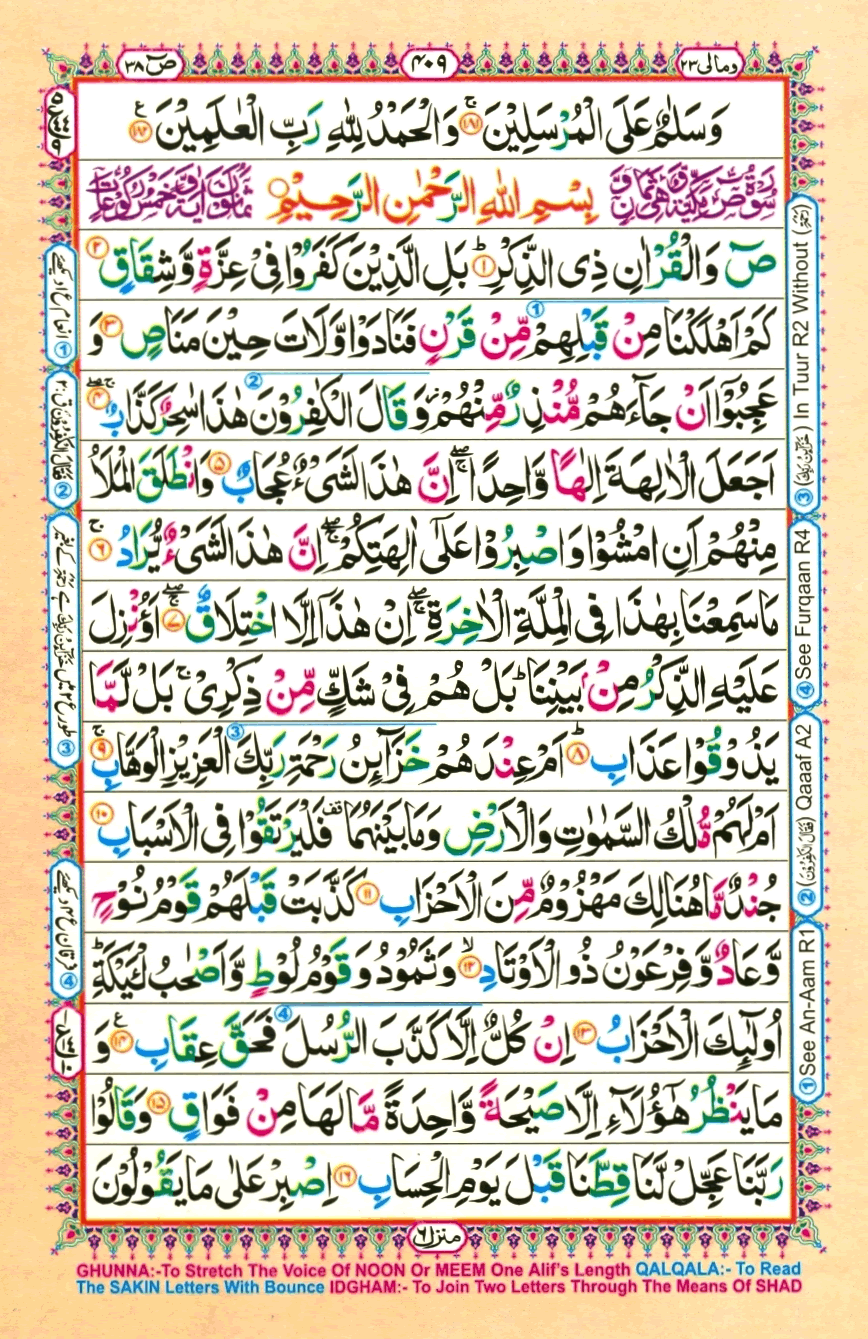 ومالی ۲۳
۴۰۹
صٓ ۳۸
وَسَلٰمٌ عَلَى الْمُرْسَلِيْنَ ۚ﴿۱۸۱﴾ وَالْحَمْدُ لِلّٰهِ رَبِّ الْعٰلَمِيْنَ ﴿۱۸۲﴾ ع
بِسْمِ اللّٰهِ الرَّحْمٰنِ الرَّحِيْمِ
صٓ وَالْقُرْاٰنِ ذِى الذِّكْرِ ؕ﴿۱﴾ بَلِ الَّذِيْنَ كَفَرُوْا فِىْ عِزَّةٍ وَّشِقَاقٍ ﴿۲﴾
كَمْ اَهْلَكْنَا مِنْ قَبْلِهِمْ مِّنْ قَرْنٍ فَنَادَوْا وَّلَاتَ حِيْنَ مَنَاصٍ ﴿۳﴾ وَ
عَجِبُوْۤا اَنْ جَآءَهُمْ مُّنْذِرٌ مِّنْهُمْ ؗ وَقَالَ الْكٰفِرُوْنَ هٰذَا سٰحِرٌ كَذَّابٌ ۖۚ﴿۴﴾
اَجَعَلَ الْاٰلِهَةَ اِلٰهًا وَّاحِدًا ۖۚ اِنَّ هٰذَا لَشَىْءٌ عُجَابٌ ﴿۵﴾ وَانْطَلَقَ الْمَلَاُ
مِنْهُمْ اَنِ امْشُوْا وَاصْبِرُوْا عَلٰٓى اٰلِهَتِكُمْ ۖۚ اِنَّ هٰذَا لَشَىْءٌ يُّرَادُ ۚ﴿۶﴾
مَا سَمِعْنَا بِهٰذَا فِى الْمِلَّةِ الْاٰخِرَةِ ۖۚ اِنْ هٰذَاۤ اِلَّا اخْتِلَاقٌ ۖۚ﴿۷﴾ ءَاُنْزِلَ
عَلَيْهِ الذِّكْرُ مِنْۢ بَيْنِنَا ؕ بَلْ هُمْ فِىْ شَكٍّ مِّنْ ذِكْرِىْ ۚ بَلْ لَّمَّا
يَذُوْقُوْا عَذَابِ ؕ﴿۸﴾ اَمْ عِنْدَهُمْ خَزَآئِنُ رَحْمَةِ رَبِّكَ الْعَزِيْزِ الْوَهَّابِ ۚ﴿۹﴾
اَمْ لَهُمْ مُّلْكُ السَّمٰوٰتِ وَالْاَرْضِ وَمَا بَيْنَهُمَا قف فَلْيَرْتَقُوْا فِى الْاَسْبَابِ ﴿۱۰﴾
جُنْدٌ مَّا هُنَالِكَ مَهْزُوْمٌ مِّنَ الْاَحْزَابِ ﴿۱۱﴾ كَذَّبَتْ قَبْلَهُمْ قَوْمُ نُوْحٍ
وَّعَادٌ وَّفِرْعَوْنُ ذُو الْاَوْتَادِ ۙ﴿۱۲﴾ وَثَمُوْدُ وَقَوْمُ لُوْطٍ وَّاَصْحٰبُ لْئَيْكَةِ ؕ
اُولٰٓئِكَ الْاَحْزَابُ ﴿۱۳﴾ اِنْ كُلٌّ اِلَّا كَذَّبَ الرُّسُلَ فَحَقَّ عِقَابِ ﴿۱۴﴾ ع وَ
مَا يَنْظُرُ هٰٓؤُلَآءِ اِلَّا صَيْحَةً وَّاحِدَةً مَّا لَهَا مِنْ فَوَاقٍ ﴿۱۵﴾ وَقَالُوْا
رَبَّنَا عَجِّلْ لَّنَا قِطَّنَا قَبْلَ يَوْمِ الْحِسَابِ ﴿۱۶﴾ اِصْبِرْ عَلٰى مَا يَقُوْلُوْنَ
③ (خَزَآئِنُ رَبِّكَ) In Tuur R2 Without (رَحْمَةِ)
④ See Furqaan R4
② (فَقَالَ الْكٰفِرُوْنَ) Qaaaf A2
① See An-Aam R1
منزل ۶
GHUNNA:-To Stretch The Voice Of NOON Or MEEM One Alif's Length QALQALA:- To Read
The SAKIN Letters With Bounce IDGHAM:- To Join Two Letters Through The Means Of SHAD